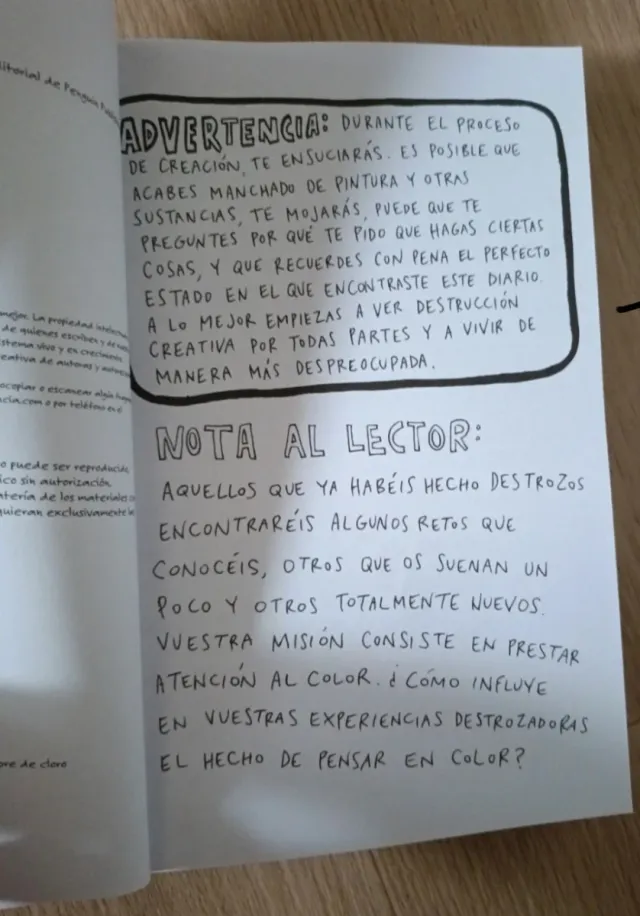 itorial de Penguin
mejor. La propiedad
de quienes escriben y de
stema vivo y en crecimiento
eativa de autoras y
ocopiar o escanear algún
ncia.com o por teléfono en el
o puede ser reproducida
ico sin autorización.
atería de los materiales
quieran exclusivamente
bre de cloro
ADVERTENCIA: DURANTE EL PROCESO
DE CREACIÓN, TE ENSUCIARÁS. ES POSIBLE QUE
ACABES MANCHADO DE PINTURA Y OTRAS
SUSTANCIAS, TE MOJARÁS, PUEDE QUE TE
PREGUNTES POR QUÉ TE PIDO QUE HAGAS CIERTAS
COSAS, Y QUE RECUERDES CON PENA EL PERFECTO
ESTADO EN EL QUE ENCONTRASTE ESTE DIARIO.
A LO MEJOR EMPIEZAS A VER DESTRUCCIÓN
CREATIVA POR TODAS PARTES Y A VIVIR DE
MANERA MÁS DESPREOCUPADA.
NOTA AL LECTOR:
AQUELLOS QUE YA HABÉIS HECHO DESTROZOS
ENCONTRARÉIS ALGUNOS RETOS QUE
CONOCÉIS, OTROS QUE OS SUENAN UN
POCO Y OTROS TOTALMENTE NUEVOS.
VUESTRA MISIÓN CONSISTE EN PRESTAR
ATENCIÓN AL COLOR. ¿CÓMO INFLUYE
EN VUESTRAS EXPERIENCIAS DESTROZADORAS
EL HECHO DE PENSAR EN COLOR?